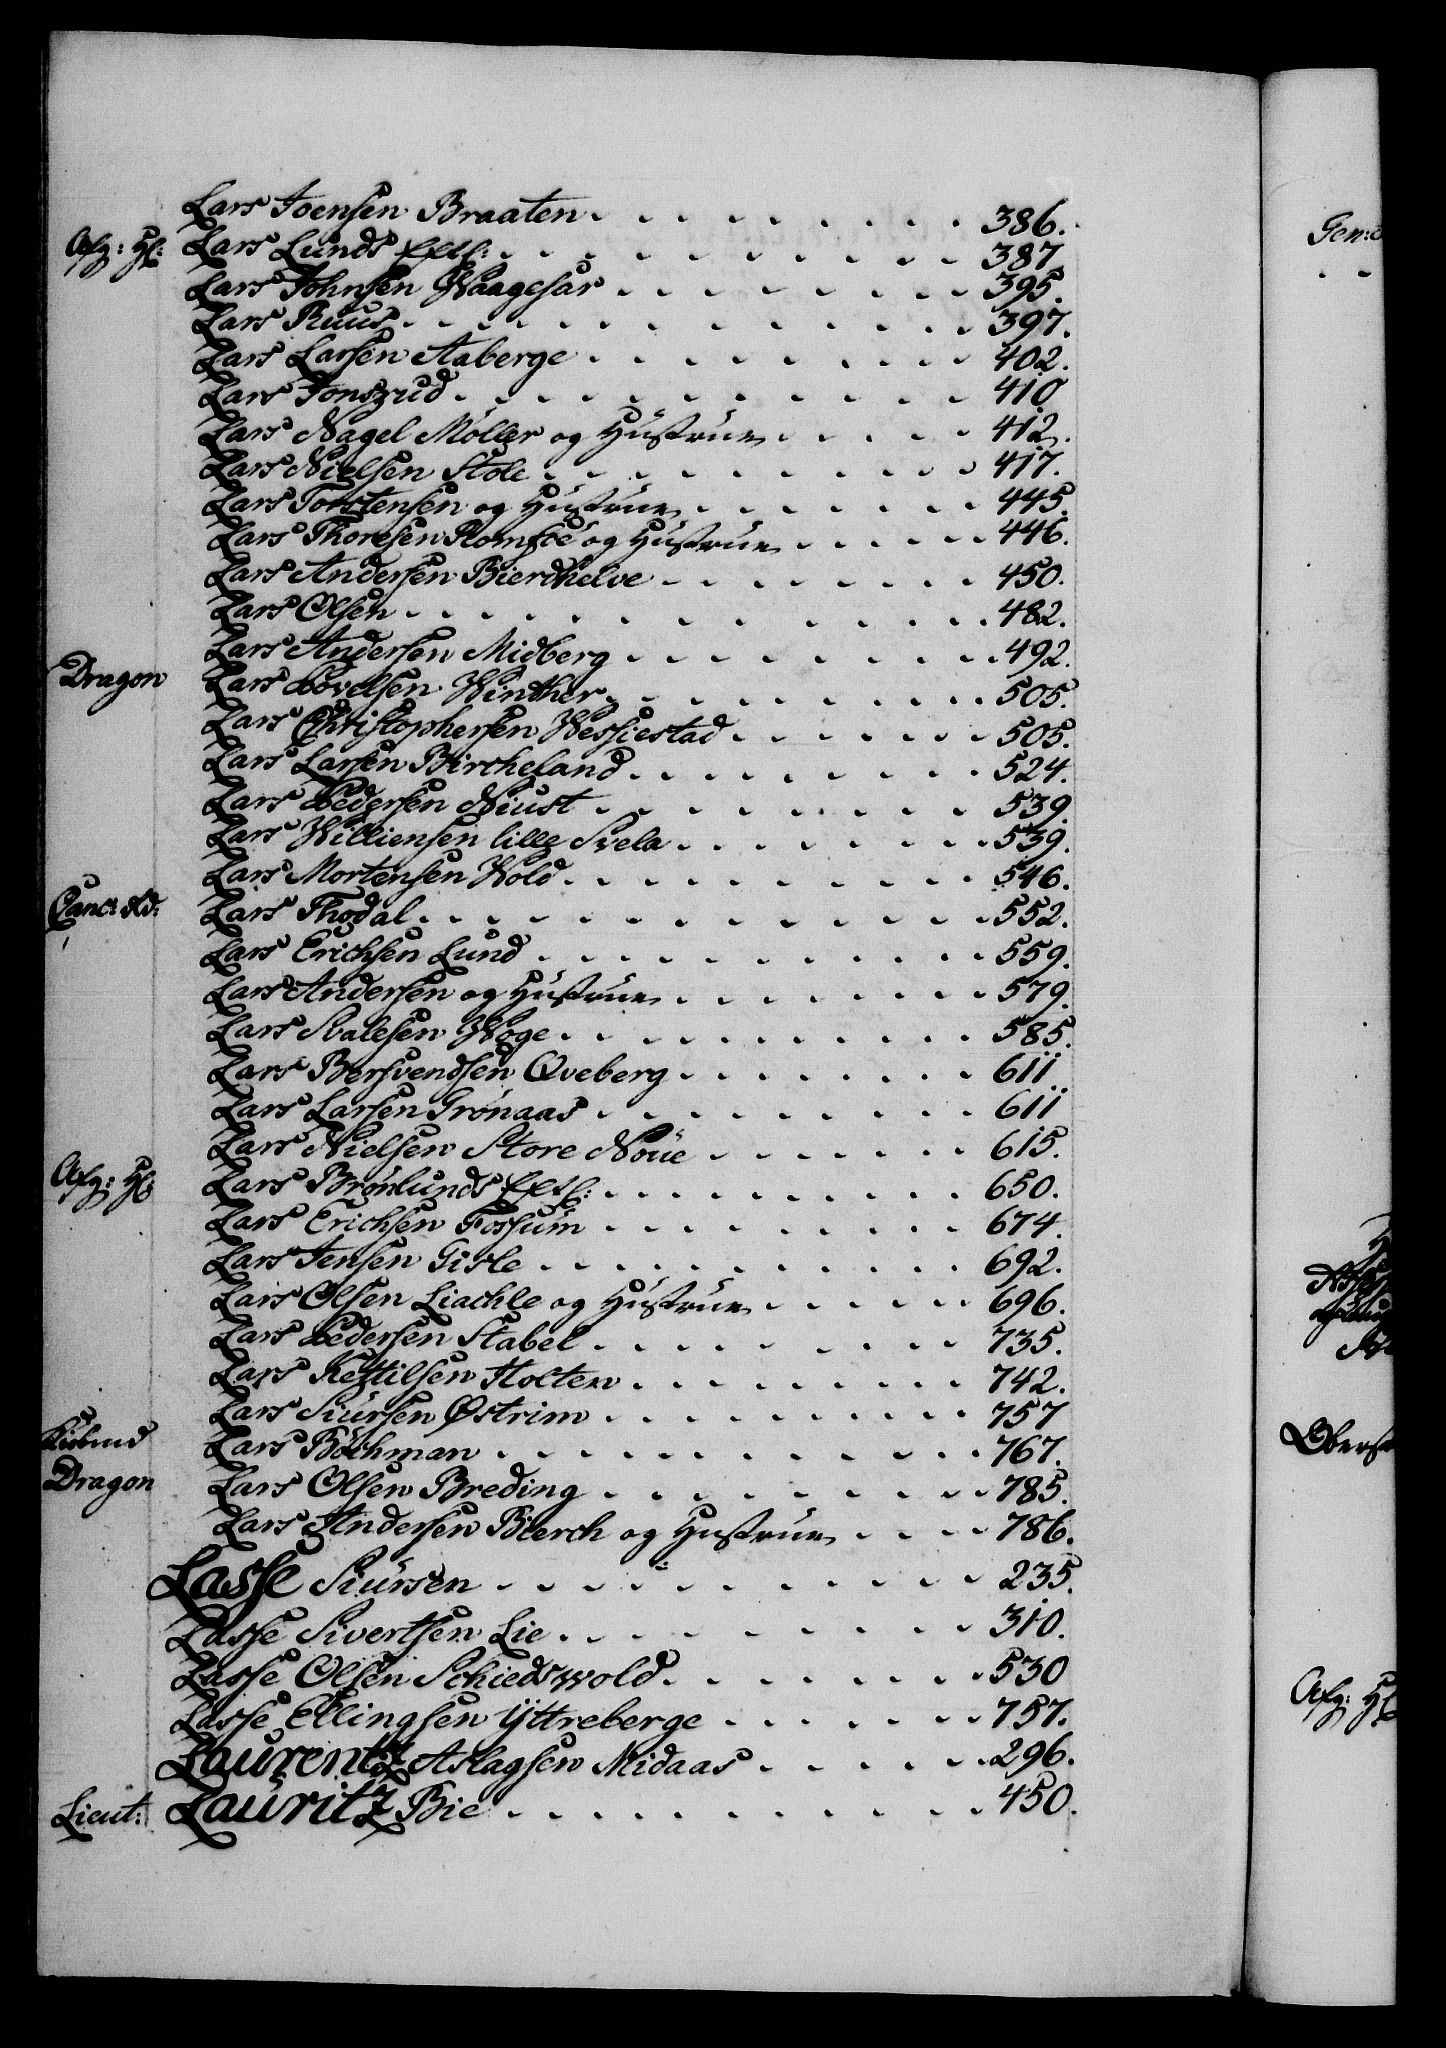 Lars Joensen Braaten . . . . . . . . . 386.
Afg: Hl: Lars Lunds Eftl: . . . . . . . . . . 387
Lars Johnsen Waagesar . . . . . . . . 395.
Lars Ruus . . . . . . . . . . . . 397.
Lars Larsen Aaberge . . . . . . . . . 402.
Lars Jonszud . . . . . . . . . . . 410
Lars Nagel Møller og Hustrue . . . . . 412.
Lars Nielsen Stole . . . . . . . . . . 417.
Lars Torstensen og Hustrue . . . . . . . 445.
Lars Thoresen Romsoe og Hustrue . . . . . 446.
Lars Andersen Bierchelve . . . . . . . . 450.
Lars Olsen . . . . . . . . . . . . 482.
Lars Andersen Midberg . . . . . . . . . 492.
Dragon Lars Povelsen Winther . . . . . . . . . 505.
Lars Christophersen Wessiestad . . . . . . . 505.
Lars Larsen Bircheland . . . . . . . . . 524.
Lars Pedersen Niust . . . . . . . . . 539.
Lars Williensen lille Svela . . . . . . . . 539.
Lars Mortensen Wold . . . . . . . . . . 546.
Canc: Rd: Lars Thodal . . . . . . . . . . . . 552.
Lars Erichsen Lund . . . . . . . . . . 559.
Lars Andersen og Hustrue . . . . . . . . 579.
Lars Svalesen Woge . . . . . . . . . . 585.
Lars Bersvendsen Qveberg . . . . . . . . 611.
Lars Larsen Grønaas . . . . . . . . . 611
Lars Nielsen Store Nöue . . . . . . . 615.
Afg: Hl: Lars Brønlunds Eftl: . . . . . . . . . . 650.
Lars Erichsen Fossum . . . . . . . . . 674.
Lars Jensen Gisle . . . . . . . . . . 692.
Lars Olsen Liachle og Hustrue . . . . . . 696.
Lars Pedersen Stabel . . . . . . . . . 735.
Lars Kettilsen Holten . . . . . . . . . 742.
Lars Siursen Østrim . . . . . . . . . 757
Lars Böchman . . . . . . . . . . . 767.
Dragon Lars Olsen Breding . . . . . . . . . 785.
Lars Andersen Bierch og Hustrue . . . . 786.
Lasse Siursen . . . . . . . . . . . 235.
Lasse Sivertsen Lie . . . . . . . . . 310.
Lasse Olsen Schiedswold . . . . . . . . 530
Lasse Ellingsen Yttreberge . . . . . . . 757.
Laurentz Aslagsen Midaas . . . . . . 296.
Lieut: Lauritz Bie . . . . . . . . . . . 450.
Gen:
Obers
Afg: Hl